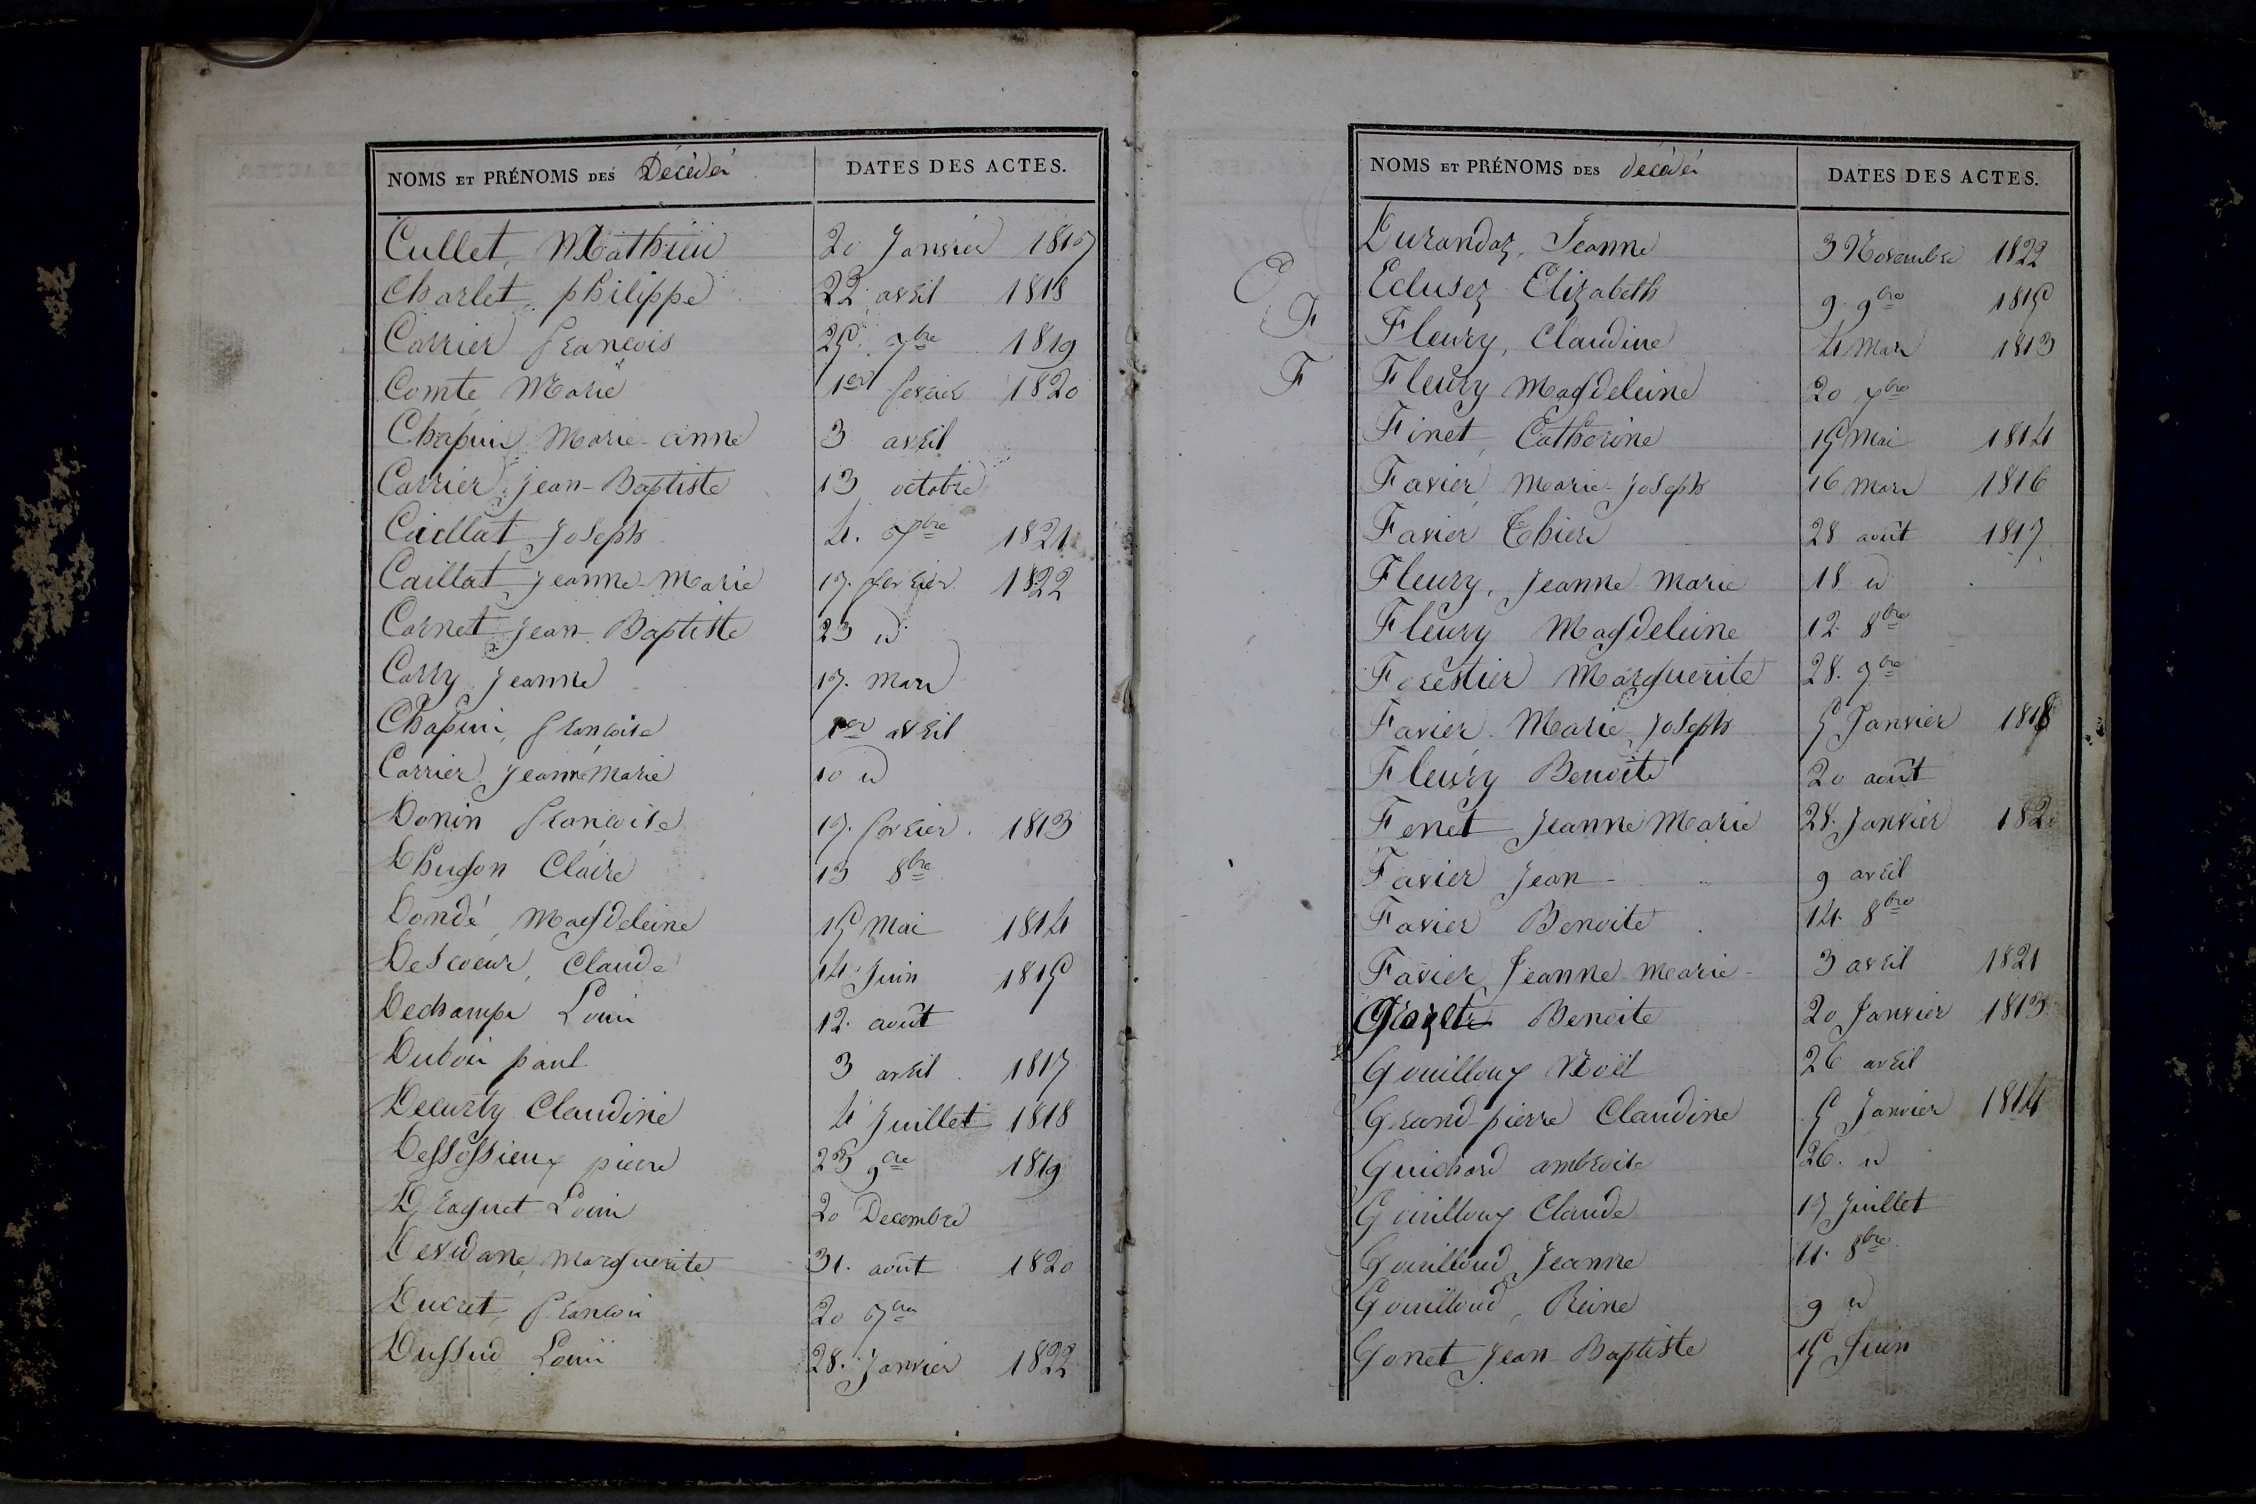 NOMS ET PRÉNOMS DES Décédés DATES DES ACTES.
Cullet, Mathieu 20 Janvier 1817
Charlet, philippe 22 avril 1818
Carrier francois 25. 7bre 1819
Comte Marie 1er fevrier 1820
Chapuis Marie-anne 3 avril
Carrier, jean-Baptiste 13 octobre
Caillat Joseph 4. 7bre 1821
Caillat Jeanne-Marie 17. fevrier 1822
Cornet Jean-Baptiste 23 id
Carry Jeanne 17. Mars
Chapuis, francoise 1er avril
Carrier Jeanne Marie 10 id
Donin francoise 17. fevrier. 1813
Dhugon Claire 13 8bre
Dondé, Magdeleine 15 Mai 1814
Descoeur, Claude 14. Juin 1815
Dechamps Louis 12. août
Dubois paul 3 avril 1817
Decurty Claudine 4 Juillet 1818
Dessossieux pierre 23 9bre 1819
Draguet Louis 20 Decembre
Marguerite 31. août 1820
Ducret, francois 20 7bre
Dussud Louis 28. Janvier 1822
NOMS ET PRÉNOMS DES décédés DATES DES ACTES.
Durandaz, Jeanne 3 Novembre 1822
E Ecluse Elizabeth 9. 9bre 1815
F Fleury, Claudine 4 Mars 1813
F Fleury Magdeleine 20 7bre
Finet, Catherine 15 Mai 1814
Favier, Marie-Joseph 16 Mars 1816
Favier Thiers 28 août 1817
Fleury, Jeanne Marie 18 id
Fleury Magdeleine 12. 8bre
Forestier Marguerite 28. 9bre
Favier Marie-Joseph 5 Janvier 1818
Fleury Benoite 20 août
Fenet Jeanne Marie 28. Janvier 1820
Favier Jean 9 avril
Favier Benoite 14. 8bre
Favier Jeanne Marie 3 avril 1821
Benoite 20 Janvier 1813
Gouilloux Noël 26 avril
Grand-pierre Claudine 5 Janvier 1814
Guichard ambroise 26. id
Gouilloux Claude 17 Juillet
Gouilloud Jeanne 11. 8bre
Gouilloud, Reine 9 id
Gonet Jean-Baptiste 15 Juin